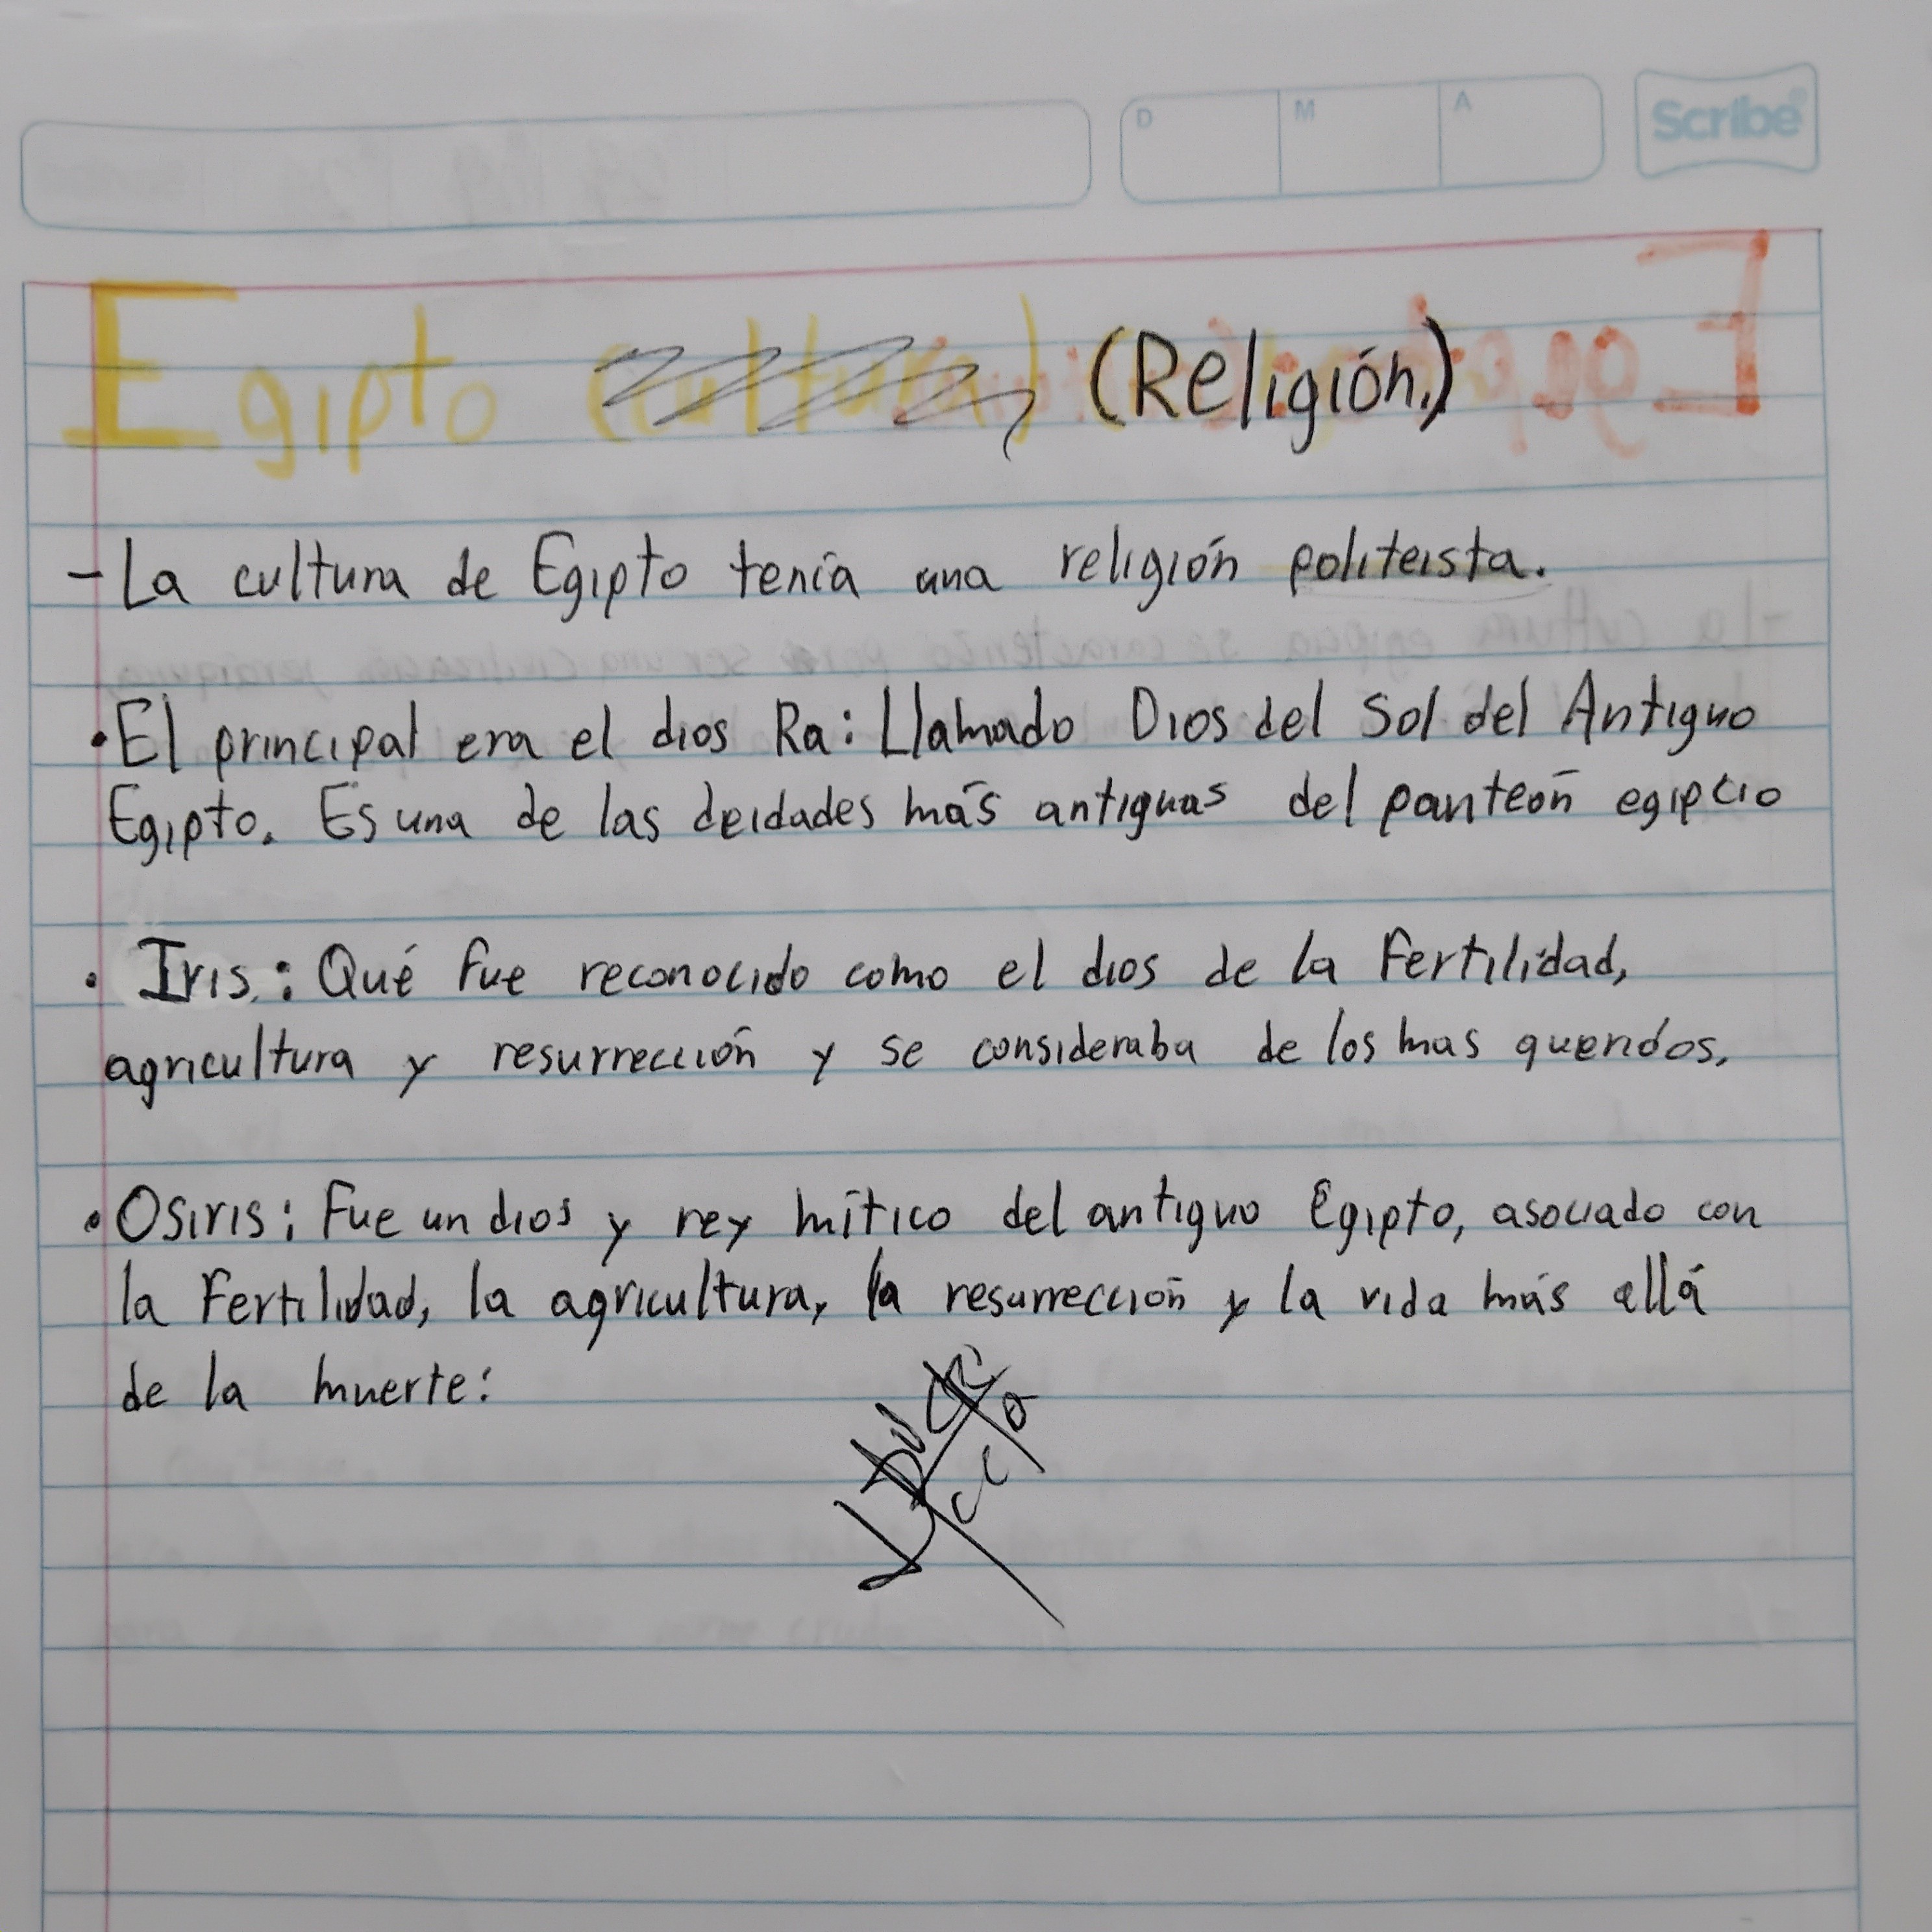 D M A Scribe
Egipto (cultura) (Religión)
- La cultura de Egipto tenía una religión politeista.
• El principal era el dios Ra: Llamado Dios del Sol del Antiguo
Egipto. Es una de las deidades más antiguas del panteón egipcio
• Iris: Qué fue reconocido como el dios de la Fertilidad,
agricultura y resurrección y se consideraba de los mas queridos.
• Osiris: Fue un dios y rey mítico del antiguo Egipto, asociado con
la Fertilidad, la agricultura, la resurrección y la vida más allá
de la muerte: